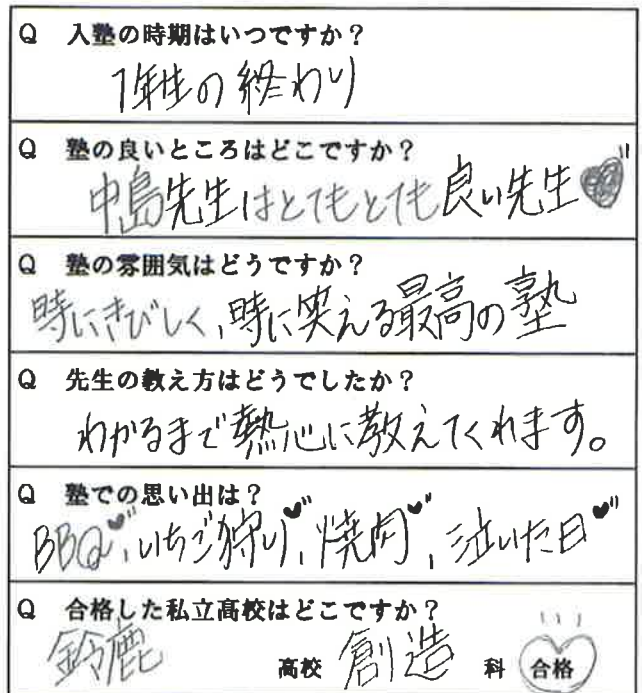 Q 入塾の時期はいつですか？
1年生の終わり
Q 塾の良いところはどこですか？
中島先生はとてもとても良い先生
Q 塾の雰囲気はどうですか？
時にきびしく,時に笑える最高の塾
Q 先生の教え方はどうでしたか？
わかるまで熱心に教えてくれます。
Q 塾での思い出は？
BBQ,いちご狩り,焼肉,泣いた日
Q 合格した私立高校はどこですか？
鈴鹿 高校 創造 科 合格